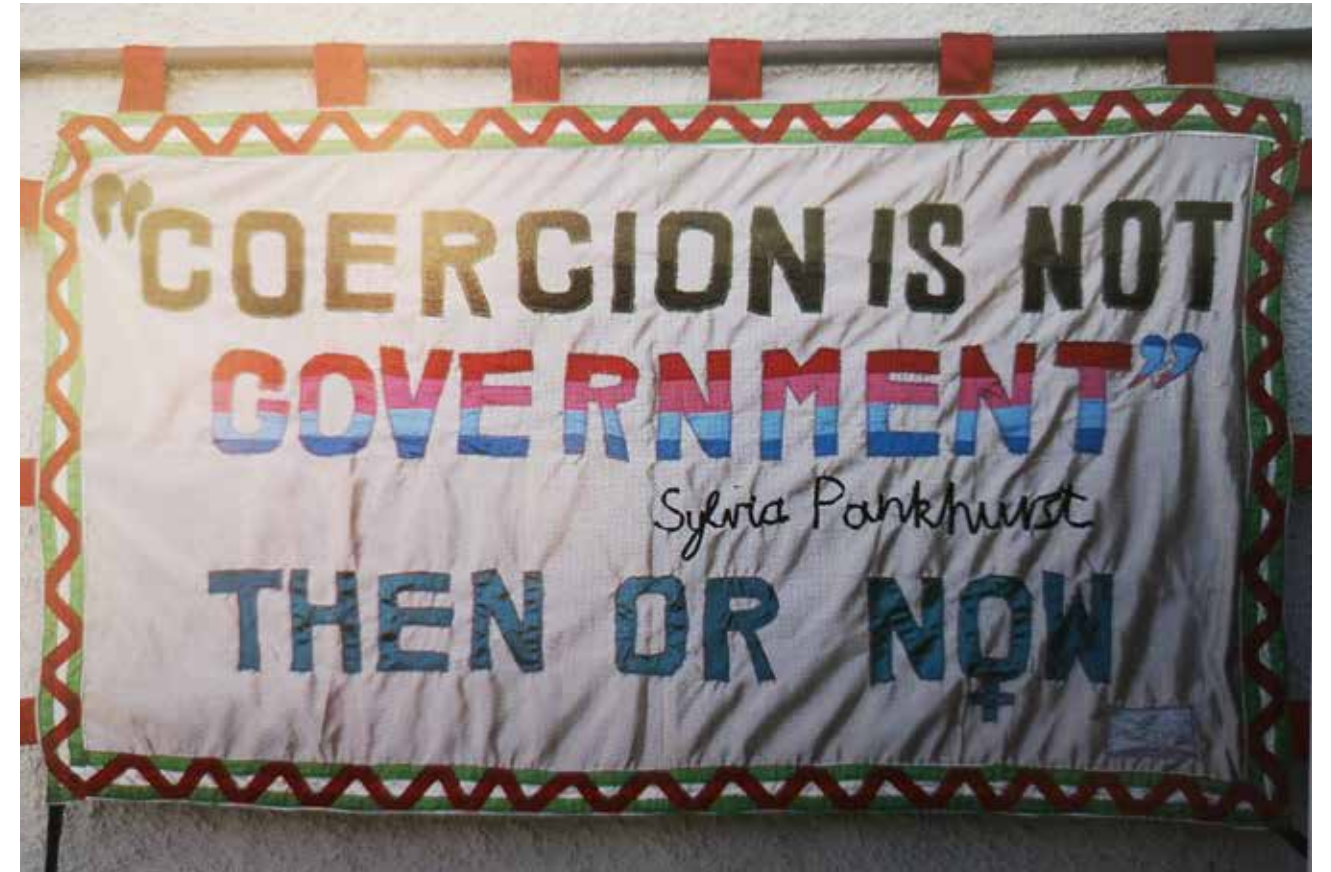 “COERCION IS NOT
GOVERNMENT”
Sylvia Pankhurst
THEN OR NOW